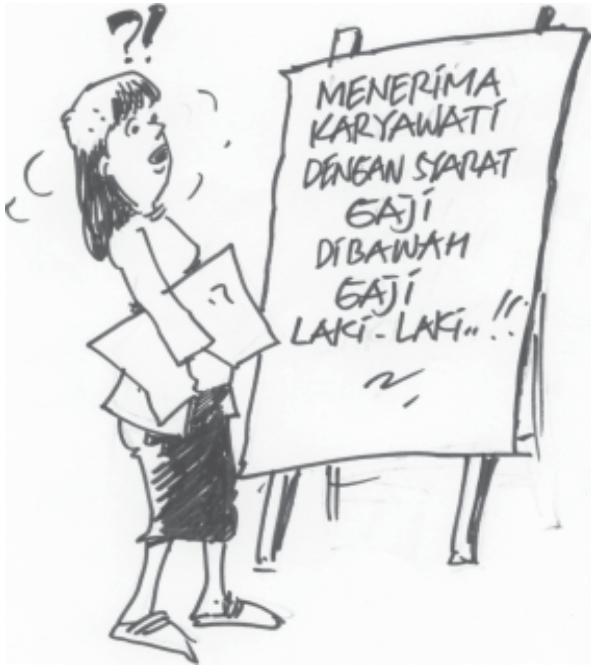 ?!
MENERIMA
KARYAWATI
DENGAN SYARAT
GAJI
DIBAWAH
GAJI
LAKI-LAKI..!!